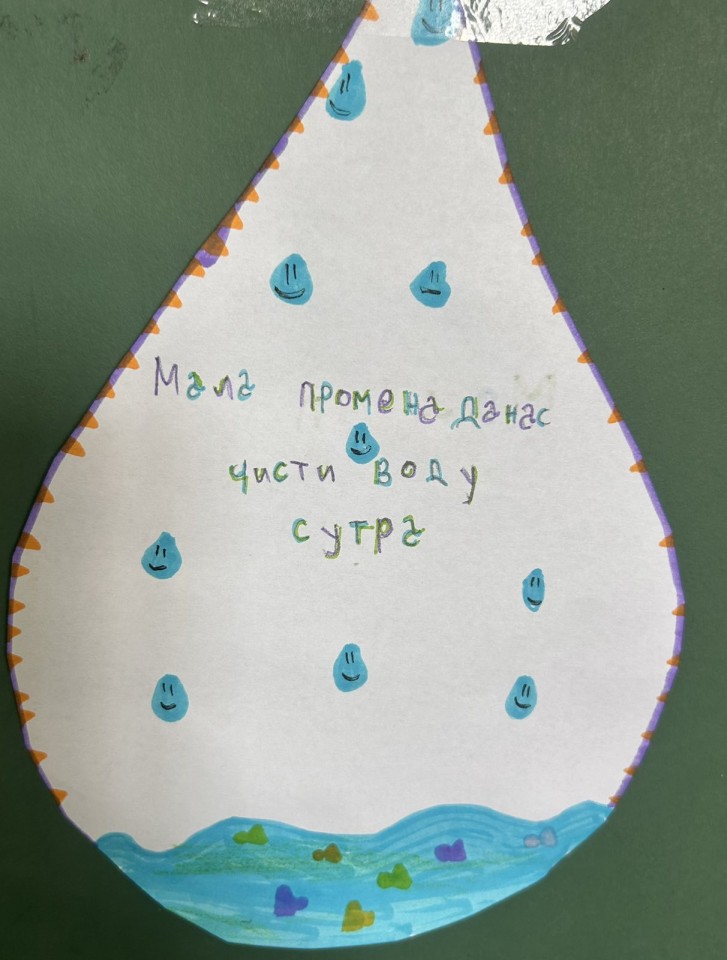 Мала промена данас
чисти воду
сутра